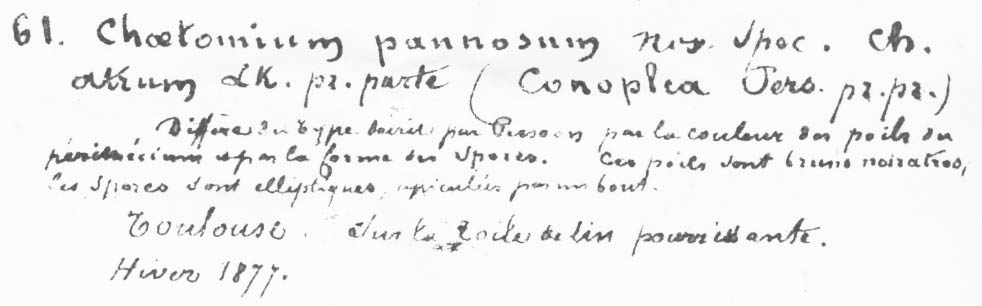 61. Chætomium pannosum nov. Spec. Ch.
atrum LK. pr. parte (Conoplea Pers. pr. pr.)
Diffère du type décrit par Persoon par la couleur des poils du
périthécium et par la forme des Spores. Ces poils sont bruns noirâtres,
les Spores sont elliptiques, apiculées par un bout.
Toulouse. Sur la toile de lin pourrissante.
Hiver 1877.